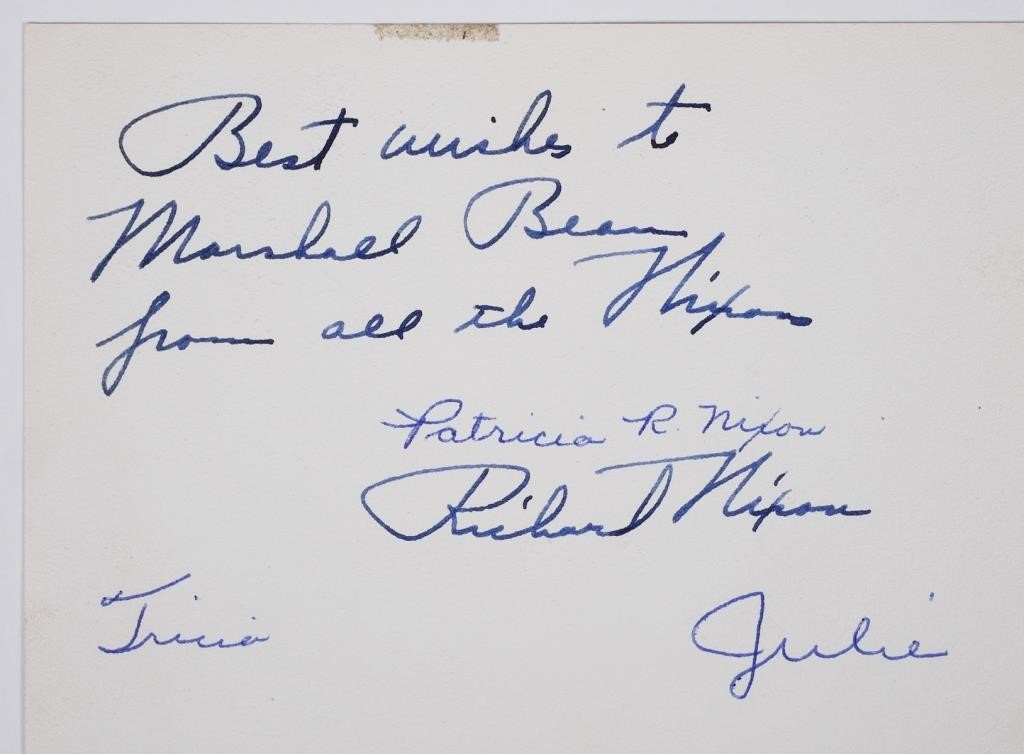 Best wishes to
Marshall Bean
from all the Nixons
Patricia R. Nixon
Richard Nixon
Tricia
Julie